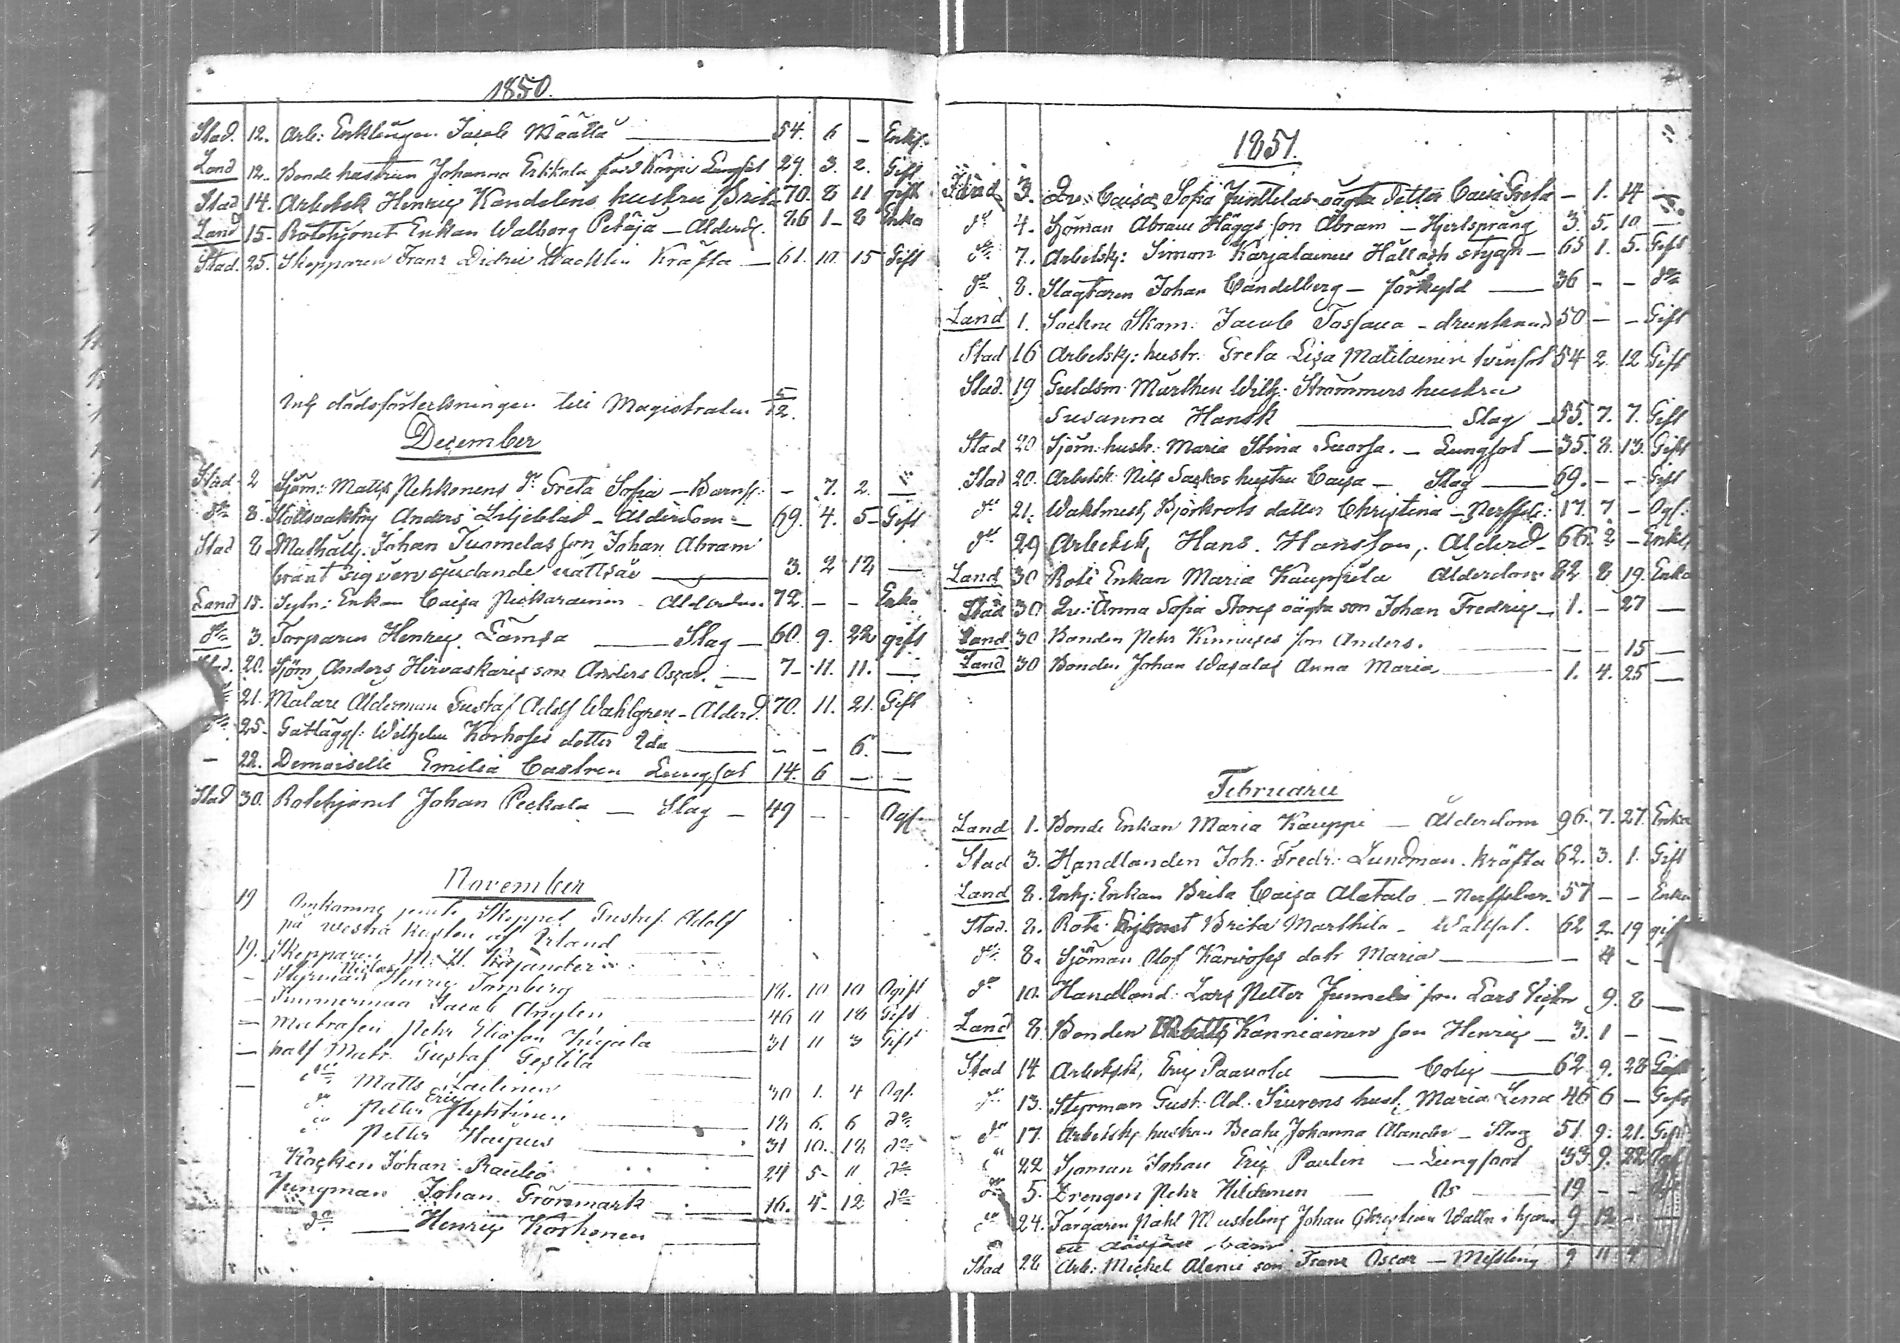 1850.
Stad. 12. Arb: Enklingen Jacob Määttä 54. 6 – Enkl:
Land 12. Bonde hustrun Johanna Erkkola född Karpi Lungsot 29. 3. 2. Gift
Stad 14. Arbetsk Henric Kandelens hustru Brita 70. 8 11 gift
Land 15. Rotehjonet Enkan Walborg Petäjä – Alderd. 76 1 – 8 Enka
Stad. 25. Skepparen Franz Didric Kräfta — 61. 10. 15 Gift
dödsförteckningen till Magistraten 5/12.
December
Stad 2 Sjöm: Matts Pehkonens dr Greta Sofia – Barnsj: – 7. 2. —
do 8. Anders Liljeblad – Alderdom – 69. 4. 5 – Gift
Stad 8 Johan Tuomelas son Johan Abram
bränt sig över sjudande 3. 2 12 —
Land 15. Enkan Caisa Alderdom 72. – – Enka
do 3. Torparen Henric Lämsä — Slag — 60. 9. 22 gift
20. Sjöm, Anders Hirvaskaris son Anders Oscar. — 7 – 11. 11. —
21. Målare Alderman Gustaf Adolf Wahlgren – Alderd. 70. 11. 21. Gift
do 25. Wilhelm Korhoses dotter Ida — – – 6. —
– 22. Demoiselle Emilia Castren Lungsot 14. 6 – –
Stad 30. Rotehjonet Johan Peckala — Slag – 49 – – Ogf.
November
19 Omkomne Skeppet Gustaf Adolf
på westra kusten af Irland
19. Skepparen Kajander
– Styrman Henric Tornberg 18. 10 10 Ogift
– Timmerman Jacob Anglen 46 11 18 Gift
– Matrosen Pehr Eliasson Kujala 31 11 3 Gift
– half Matr. Gustaf Testila
do Matts 30 1. 4 Ogf.
do Petter Eric 18 6. 6 do
do Petter 31 10. 12 do
Kocken Johan Raulio 24 5 – 11 do
Jungman Johan Grönmark 16. 4 – 12 do
do — Henric Korhonen
1851.
Stad 3. Caisa Sofia Junttilas oägta dotter Caisa Greta – 1. 14 —
do 4. Sjöman Abram Häggs son Abram – Hjertsprång 3. 5. 10 —
do 7. Arbetsk: Simon Karjalainen Håll och stygn – 65 1. 5. Gift
do 8. Slagtaren Johan Candelberg – förkyld — 36 – – do
Land 1. Sockne Skom. Jacob Tossava – drunknad 50 – – Gift
Stad 16 Arbetsk: hustr. Greta Lisa Matilainen 54 2 12 Gift
Stad. 19 Guldsm: Marthen Wilh: Strömmers hustru
Susanna Hansk — Slag — 55. 7. 7. Gift
Stad 20 Sjöm: hustr: Maria Stina Luorsa. – Lungsot — 35. 8. 13. Gift
Stad 20. Arbetsk: Nils hustru Caisa — Slag — 69. – – Gift
do 21. Waktmest, Björkrots dotter Christina – Nerffeb: 17. 7 – Ogf:
do 29 Arbetsk, Hans Hansson, Alderd. 66. 2 – Enkl
Land 30 Rote Enkan Maria Kauppila Alderdom 82 8 19 Enka
Stad 30 Qv: Anna Sofia oägta son Johan Fredric – 1. – 27 —
Land 30 Bonden Pehr Kinnuses son Anders. — – – 15 —
Land 30 Bonden Johan Anna Maria — 1. 4. 25 —
Februarii
Land 1. Bonde Enkan Maria Kauppi — Ålderdom 96. 7. 27. Enka
Stad 3. Handlanden Joh: Fredr: Lundman – kräfta 62. 3. 1. Gift
Land 8. Inhy: Enkan Brita Caisa Alatalo – Nerffeber 57 – – Enka
Stad. 2. Rote Hjonet Brita Marthila – Wattsot. 62 2. 19 gift
do 8. Sjöman Olof Karvoses dotr Maria — – 4 – –
do 10. Handland: Lars Petter Junnelii son Lars Victor 9. 8 —
Land 8. Bonden Matts Kanniainen son Henric — 3. 1 – –
Stad 14 Arbetsk, Eric Paavola — Colic — 62. 9. 28 Gift
do 13. Styrman Gust. Ad. hust, Maria Lena 46 6 – Gift
do 17. Arbetsk, hustrun Beata Johanna Alander – Slag 51. 9. 21. Gift
do 22 Sjöman Johan Eric Paulin – Lungsot 33 9. 22 Ogf
do 5. Drengen Pehr Hiltunen — do — 19 – –
do 24. Färgaren Mustelins Johan Christian Watten i hjernan 9 12 – —
ett dödfödt barn
Stad 28 Arb: Mickel son Franz Oscar — Messling 9 11 9